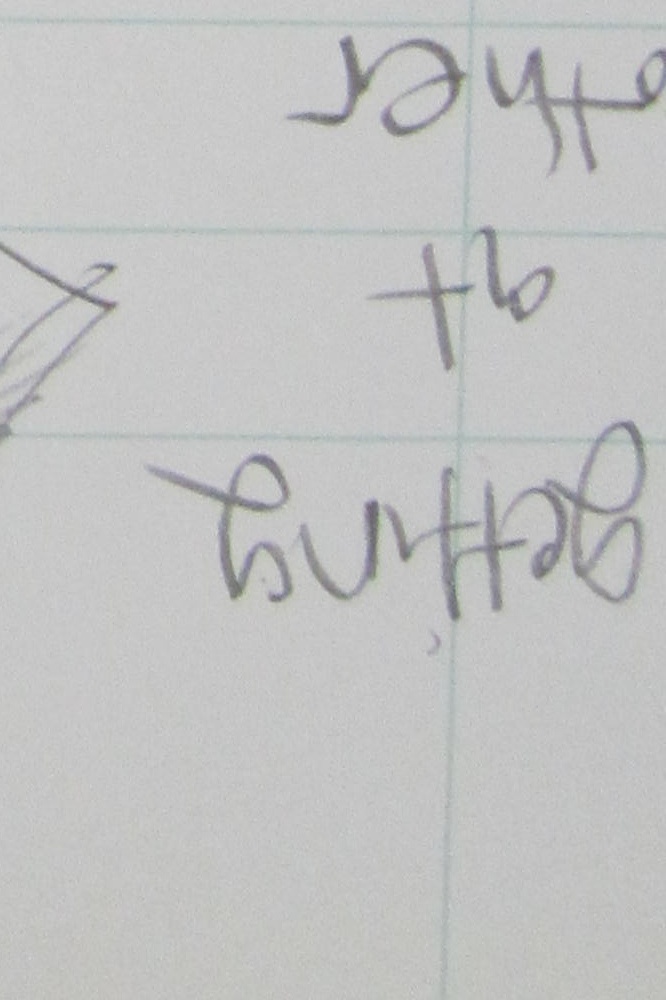 getting
at
other